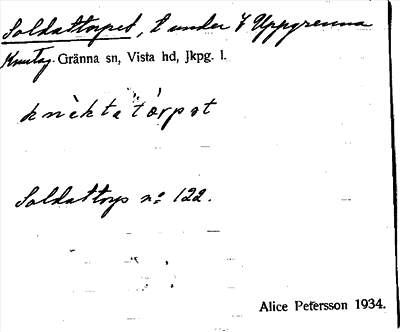 Soldattorpet, l under 7 Uppgrenna
Knutag. Gränna sn, Vista hd, Jkpg. l.
knèktatórpət
Soldattorp nº 122.
Alice Petersson 1934.